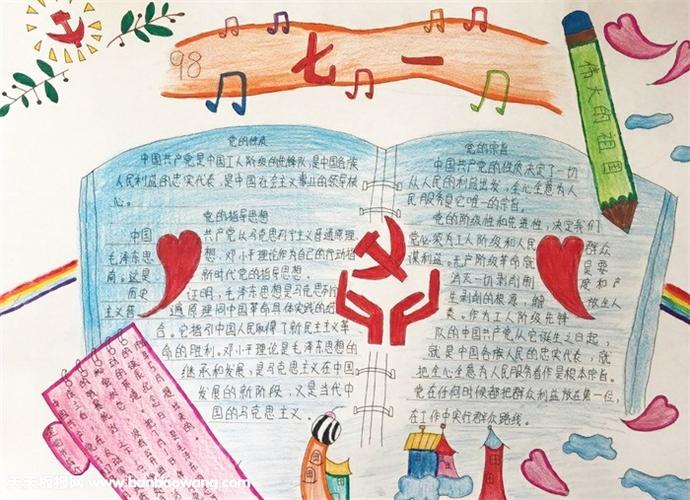 98
七 一
伟大的祖国
党的性质
中国共产党是中国工人阶级的先锋队,是中国各族
人民利益的忠实代表,是中国社会主义事业的领导核
心。
党的指导思想
中国 共产党从马克思列宁主义普遍原理
毛泽东思 想、邓小平理论作为自己的行动指
南。这是 新时代党的指导思想。
历史 证明,毛泽东思想是马克思列宁
主义普 遍原理同中国革命具体实践的结
合。它指引中国人民取得了新民主主义革
命的胜利。邓小平理论是毛泽东思想的
继承和发展,是马克思主义在中国
发展的新阶段,又是当代中
国的马克思主义。
党的宗旨
中国共产党的性质决定了一切
从人民的利益出发,全心全意为人
民服务是它唯一的宗旨。
党的阶级性和先进性,决定我们
党必须为工人阶级和人民 群众
谋利益。无产阶级革命就 是要
消灭一切剥削制 度和产
生剥削的根源,解 放全人
类。作为工人阶级先锋
队的中国共产党从它诞生之日起,
就是中国各族人民的忠实代表,就
把全心全意为人民服务看作是根本宗旨。
党在任何时候都把群众利益放在第一位,
在工作中实行群众路线。
天天板报网 www.banbaowang.com